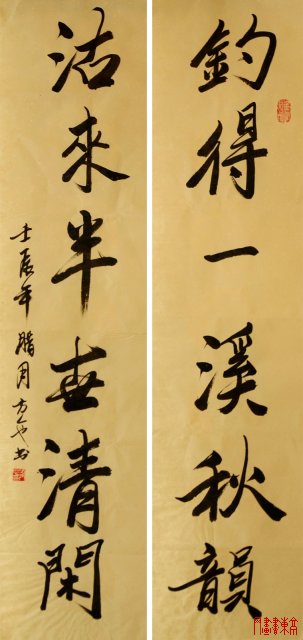 釣得一溪秋韻
沽來半世清閑
壬辰年腊月